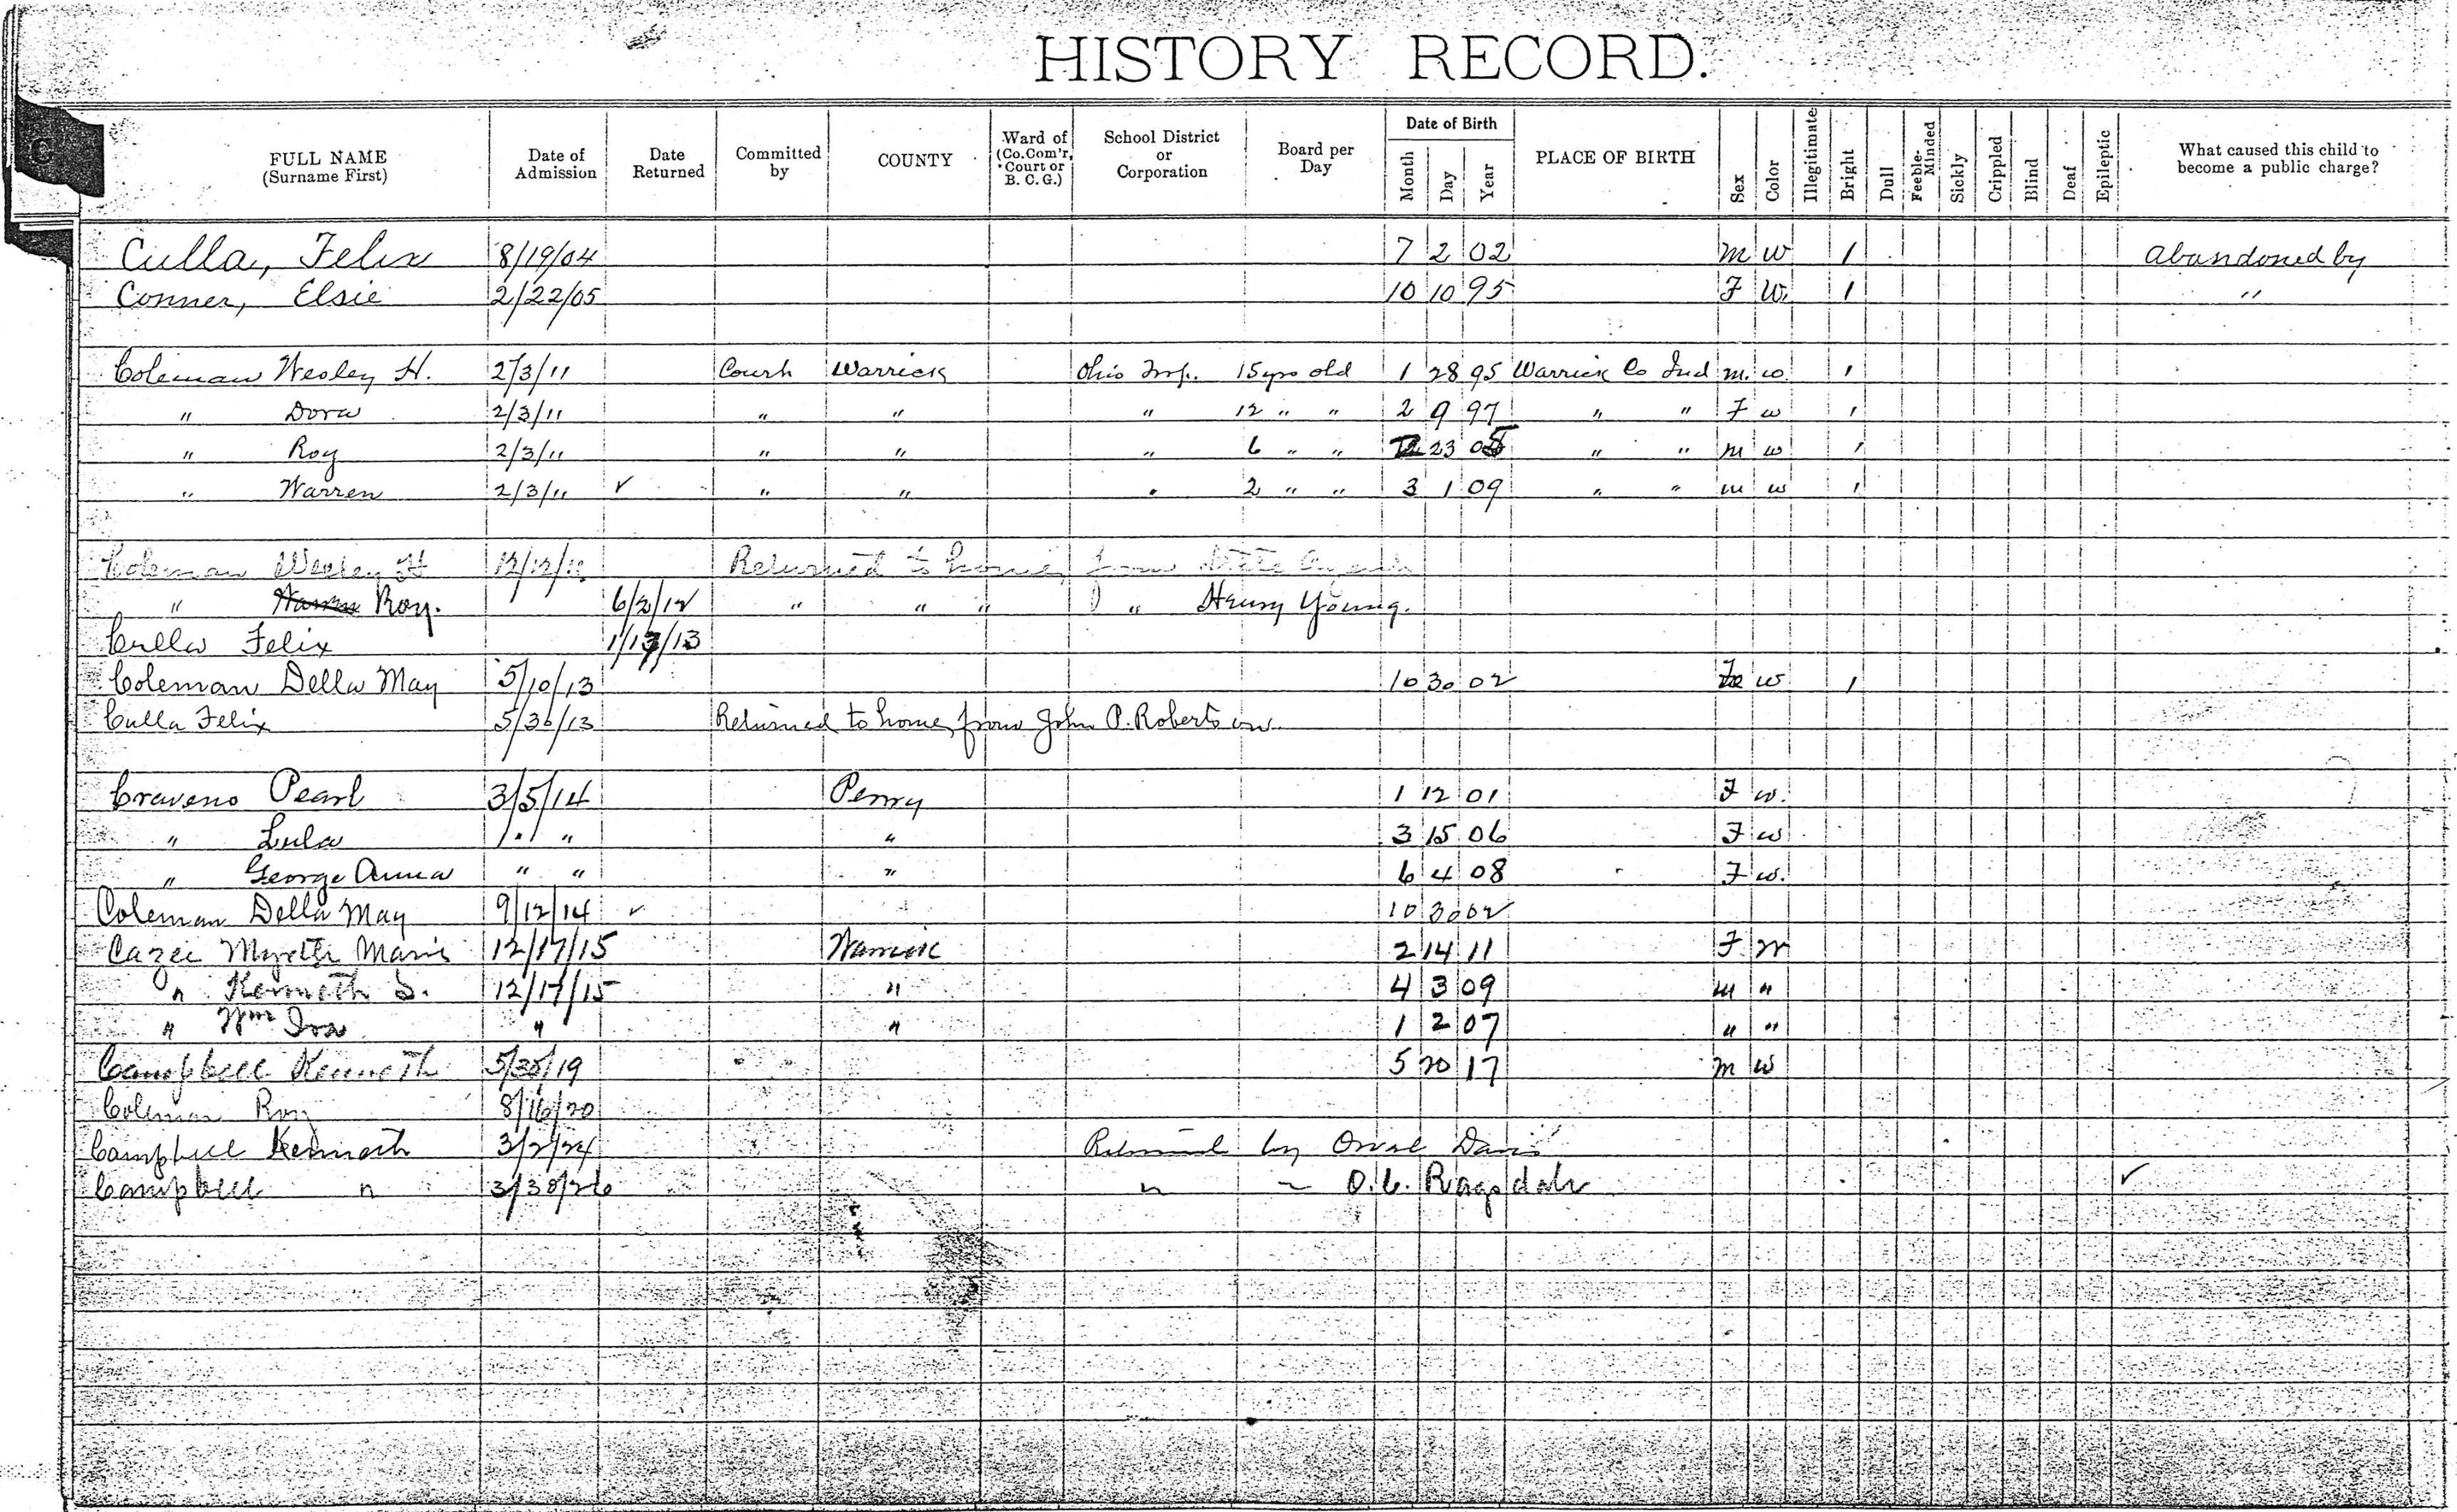 HISTORY RECORD.
FULL NAME (Surname First) Date of Admission Date Returned Committed by COUNTY Ward of (Co.Com'r, Court or B. C. G.) School District or Corporation Board per Day Date of Birth Month Day Year PLACE OF BIRTH Sex Color Illegitimate Bright Dull Feeble-Minded Sickly Crippled Blind Deaf Epileptic What caused this child to become a public charge?
Culla, Felix 8/19/04 7 2 02 M W 1 Abandoned by
Conner, Elsie 2/22/05 10 10 95 F W. 1 "
Coleman Wesley H. 2/3/11 Court Warrick Ohio Twp. 15 yrs old 1 28 95 Warrick Co Ind m. w. 1
" Dora 2/3/11 " " " 12 " " 2 9 97 " " F w 1
" Roy 2/3/11 " " " 6 " " 23 05 " " m w 1
" Warren 2/3/11 ✓ " " " 2 " " 3 1 09 " " m w 1
Coleman Wesley H 12/12/11 Returned to home, from State Agent
" Roy. 6/2/12 " " " " Henry Young.
Culla Felix 1/13/13
Coleman Della May 5/10/13 10 30 02 w 1
Culla Felix 5/30/13 Returned to home, from John P. Robertson
Craveno Pearl 3/5/14 Perry 1 12 01 F w.
" Lula " " " 3 15 06 F w
" George Anna " " " 6 4 08 F w.
Coleman Della May 9/12/14 ✓ 10 30 02
Cazee Myrtle Marie 12/17/15 Warrick 2 14 11 F W
" Kenneth S. 12/17/15 " 4 3 09 m "
" Wm Ira " " 1 2 07 " "
Campbell Kenneth 5/30/19 5 20 17 m w
Coleman Roy 8/16/20
Campbell Kenneth 3/2/24 Returned by Orval Davis
Campbell " 3/30/26 " " O. C. Ragsdale ✓